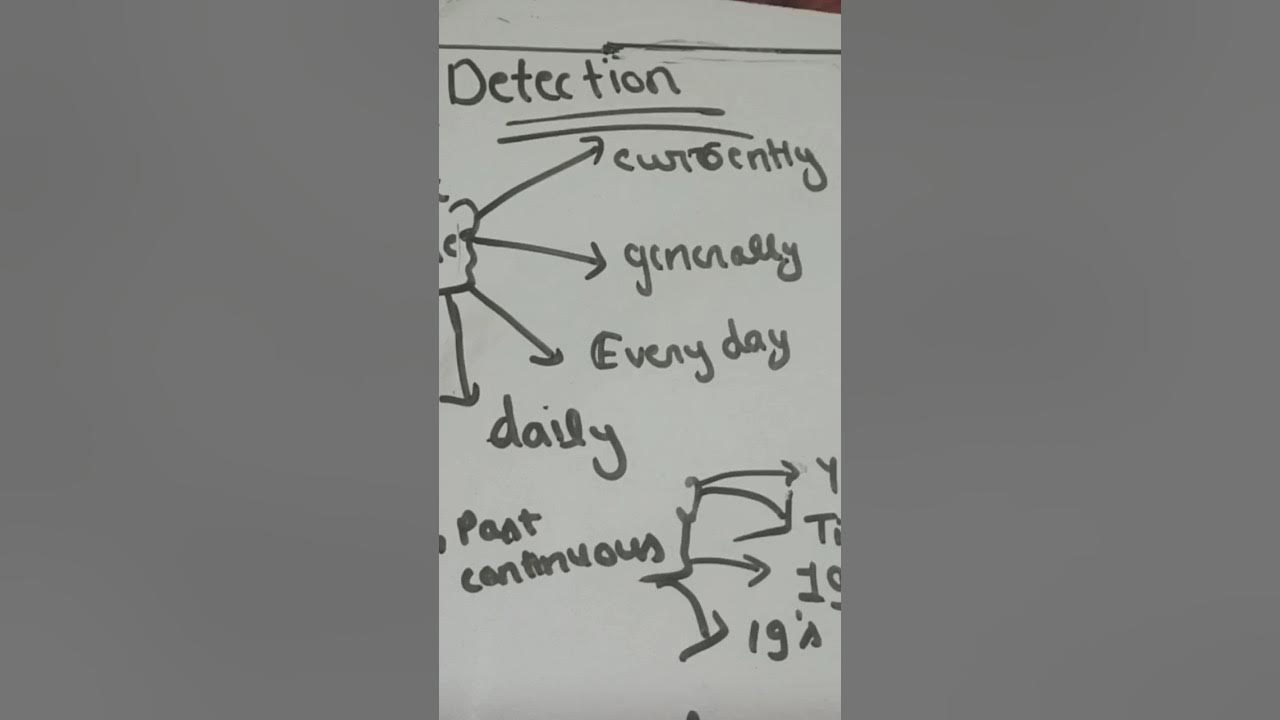 Detection
currently
generally
Every day
daily
Past
continuous
Y
Ti
19
19's